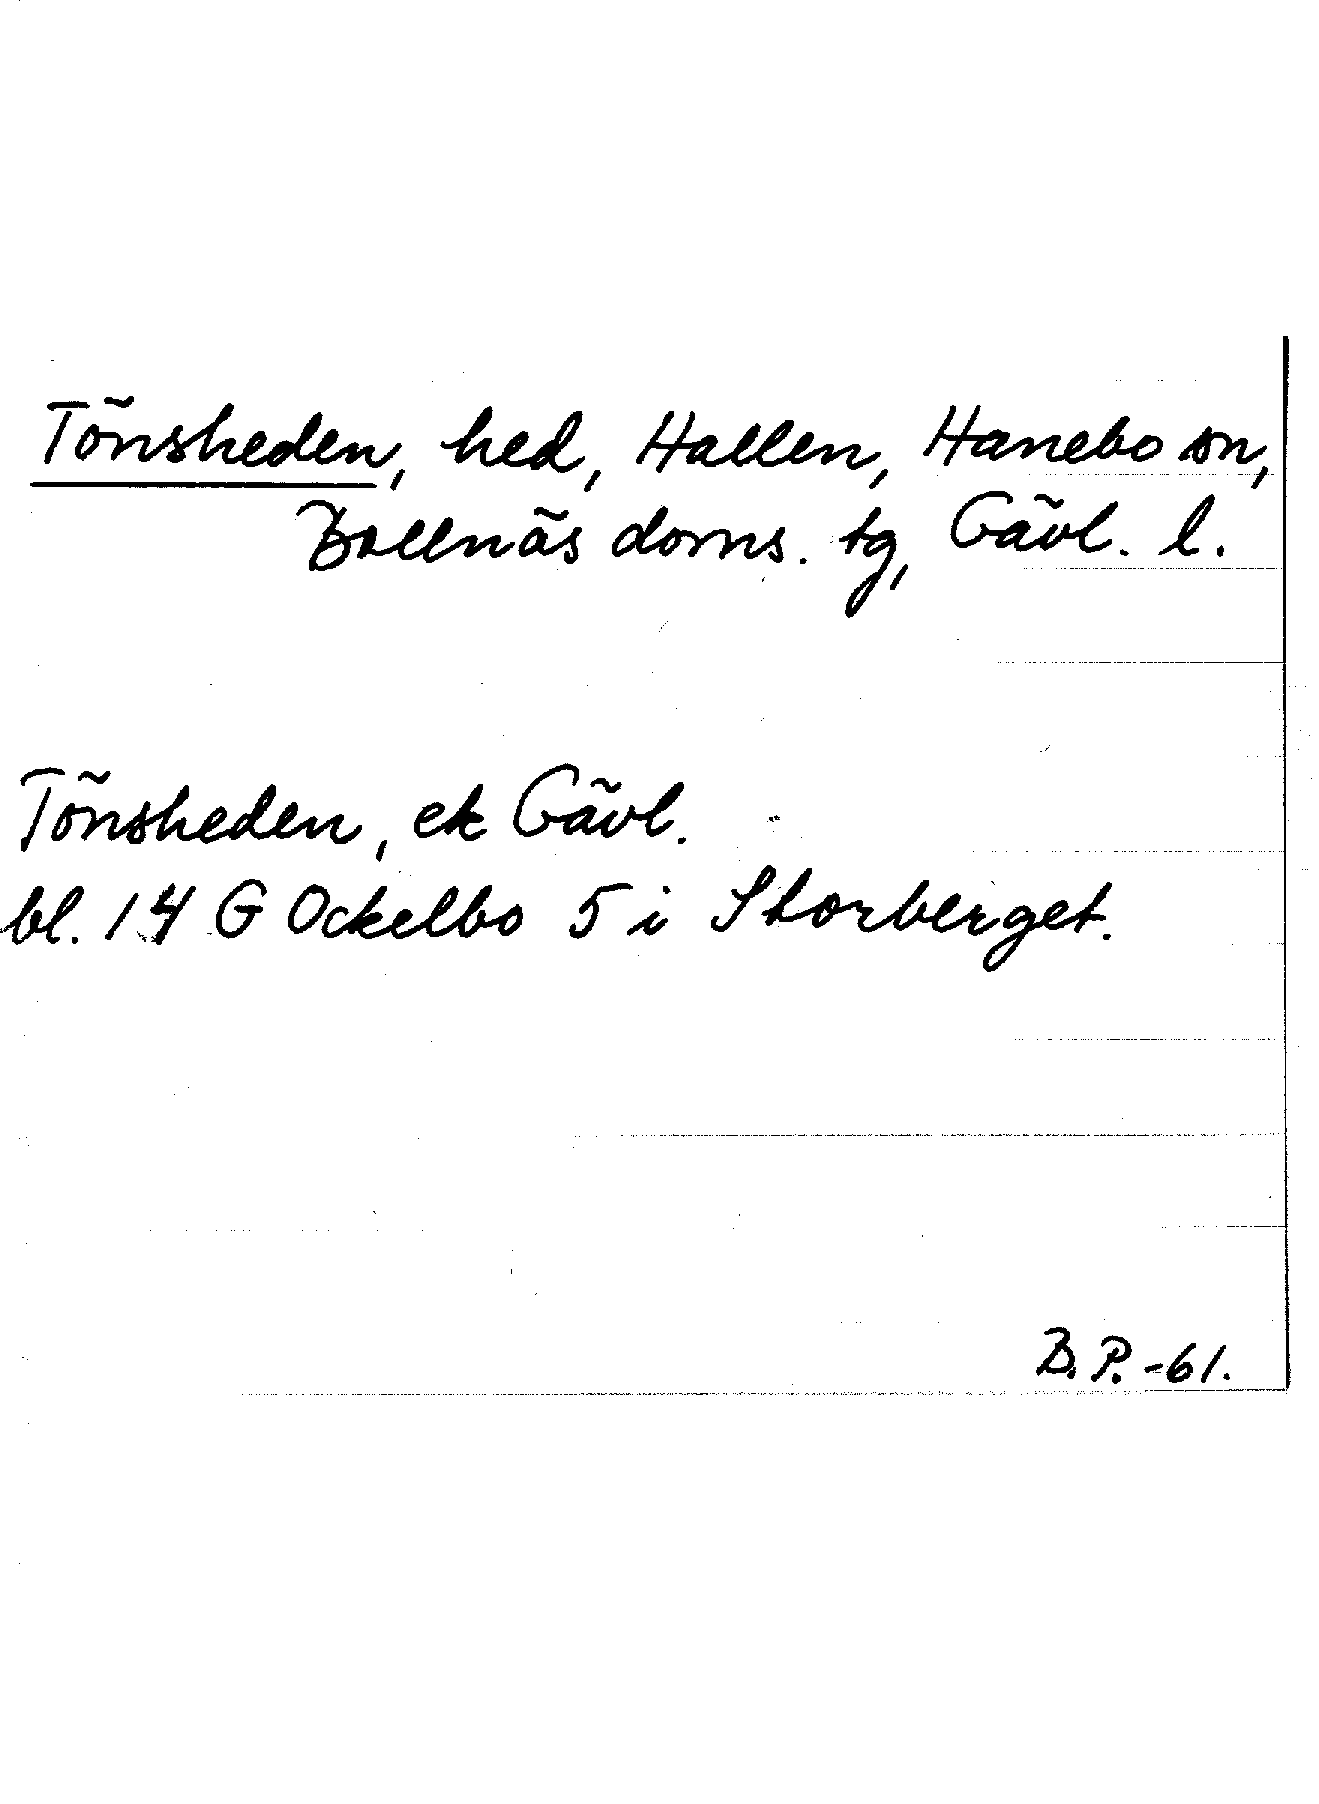 Tönsheden, hed, Hallen, Hanebo sn,
Bollnäs doms. tg, Gävl. l.
Tönsheden, ek Gävl.
bl. 14 G Ockelbo 5 i Storberget.
B.P. -61.